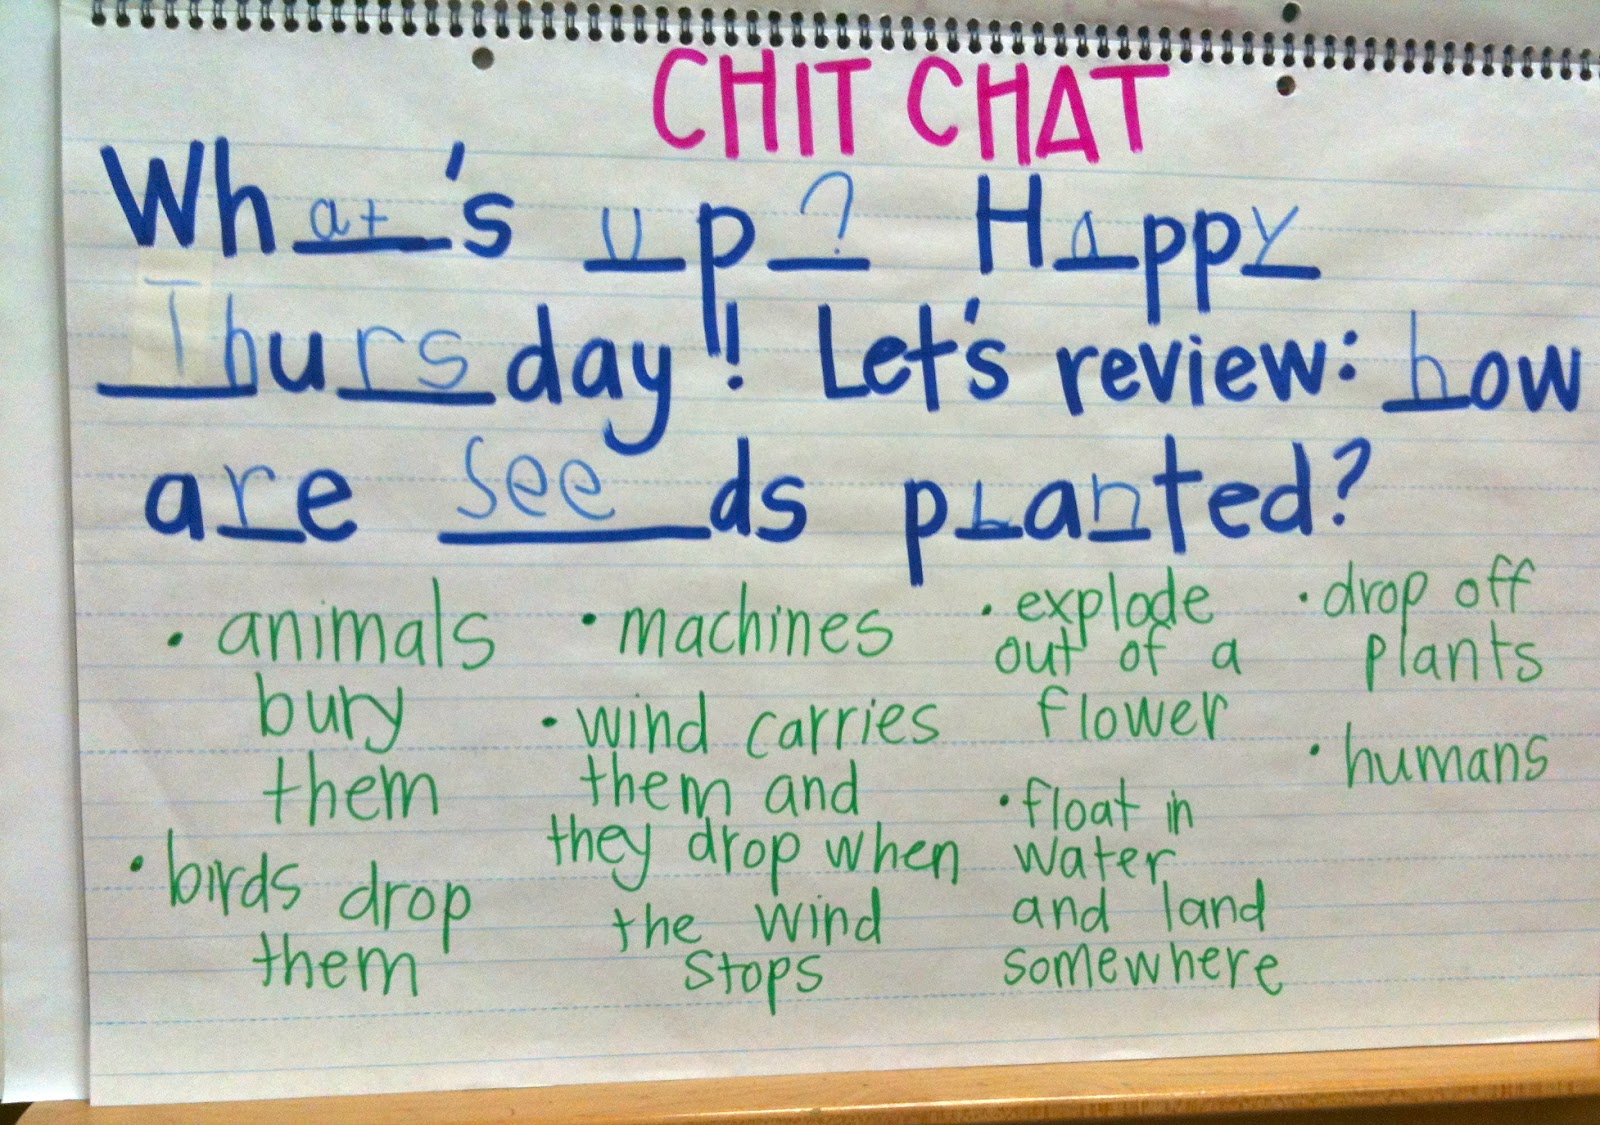 CHIT CHAT
What's up? Happy
Thursday!! Let's review: how
are seeds planted?
• animals
bury
them
• birds drop
them
• machines
• wind carries
them and
they drop when
the wind
stops
• explode
out of a
flower
• float in
water
and land
somewhere
• drop off
plants
• humans